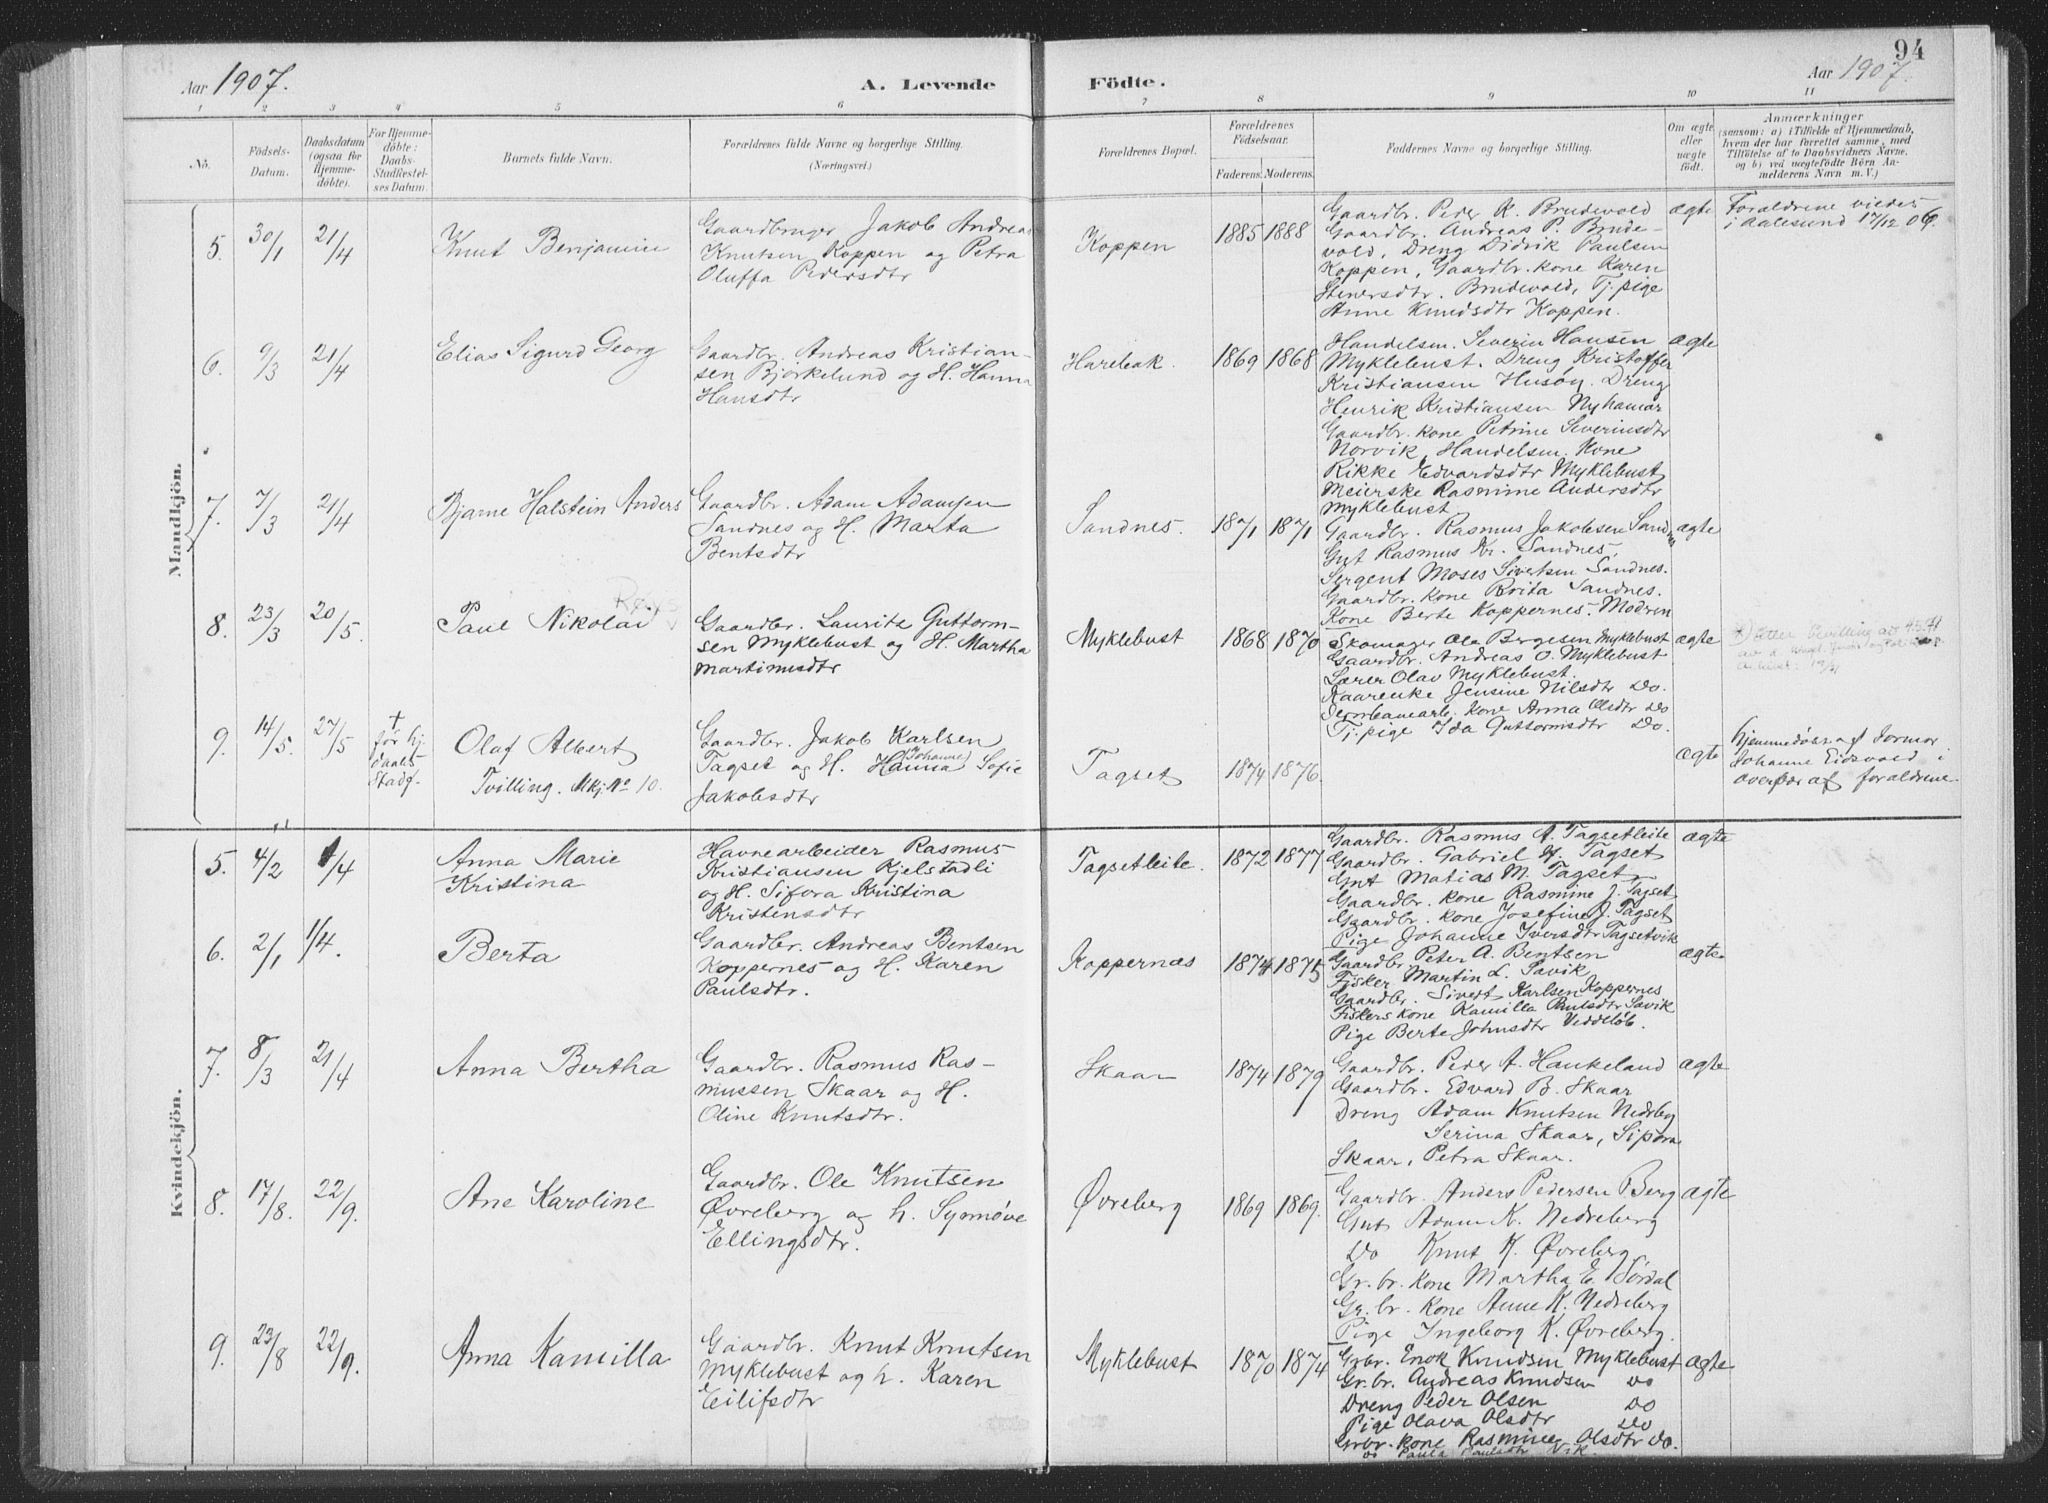 94
Aar 1907.
A. Levende
Födte.
Aar 1907.
1 2 3 4 5 6 7 8 9 10 11
No.
Födsels-
Datum.
Daabsdatum
(ogsaa for
Hjemme-
döbte).
For Hjemme-
döbte:
Daabs-
Stadfæstel-
ses Datum.
Barnets fulde Navn.
Forældrenes fulde Navne og borgerlige Stilling.
(Næringsvei.)
Forældrenes Bopæl.
Forældrenes
Födselsaar.
Faderens. Moderens.
Faddernes Navne og borgerlige Stilling.
Om ægte
eller
uægte
födt.
Anmærkninger
(saasom: a) i Tilfælde af Hjemmedaab,
hvem der har forrettet samme, med
Tilföielse af to Daabsvidners Navne,
og b) ved uægtefödte Börn An-
melderens Navn m. V.)
Mandkjön.
5. 30/1 21/4
Knut Benjamin
Gaardbruger Jakob Andreas
Knutsen Koppen og Petra
Oluffa Pedersdtr
Koppen
1885 1888
Gaardbr. Peder K. Brudevold
Gaardbr. Andreas P. Brude-
vold, Dreng Didrik Paulsen
Koppen, Gaardbr. kone Karen
Stenersdtr. Brudevold, Tj. pige
Anne Knudsdtr Koppen.
ægte
Forældrene viedes
i Aalesund 17/12 06.
6. 9/3 21/4
Elias Sigurd Georg
Gaardbr. Andreas Kristian-
sen Bjørkelund og H. Hanna
Hansdtr
Harebak.
1869 1868
Handelsm. Severin Hansen
Myklebust. Dreng Kristoffer
Kristiansen Husøy. Dreng
Henrik Kristiansen Nyhamar
Gaardbr. kone Petrine Severinsdtr
Norvik, Handelsm. Kone
Rikke Edvardsdtr Myklebust
Meierske Rasmine Andersdtr
Myklebust.
ægte
7. 7/3 21/4
Bjarne Halstein Anders
Gaardbr. Adam Adamsen
Sandnes og H. Marta
Bentsdtr
Sandnes.
1871 1871
Gaardbr. Rasmus Jakobsen Sandnes
Gut Rasmus Kr. Sandnes,
Sergent Moses Sivertsen Sandnes.
Gaardbr. kone Brita Sandnes.
Kone Berte Koppernes. Modren
ægte
8. 23/3 20/5.
Paul Nikolai
Gaardbr. Laurits Guttorm-
sen Myklebust og H. Martha
Martinusdtr
Myklebust
1868 1870
Skomager Ola Bergesen Myklebust
Gaardbr. Andreas O. Myklebust
Lærer Olav Myklebust.
Kaarenke Jensine Nilsdtr Do.
Jernbanearb. kone Anna Olsdtr Do
Tj. pige Ida Guttormsdtr Do.
ægte
9. 14/5. 27/5
†
før hj.
daabs
Stadf.
Olaf Albert
Tvilling. Mkj. No 10.
Gaardbr. Jakob Karlsen
Tagset og H. Hanna (Johanne) Sofie
Jakobsdtr
Tagset
1874 1876.
ægte
hjemmedøbt af Jormor
Johanne Eidsvold i
overvær af forældrene
Kvindekjön.
5. 4/2 1/4
Anna Marie
Kristina
Havnearbeider Rasmus
Kristiansen Kjelstadli
og H. Sifora Kristina
Kristensdtr
Tagsetleite.
1872 1877
Gaardbr. Rasmus A. Tagsetleite
Gaardbr. Gabriel H. Tagset
Gut Matias M. Tagset
Gaardbr. kone Rasmine J. Tagset
Gaardbr. kone Josefine J. Tagset
Pige Johanne Iversdtr Tagsetvik
ægte
6. 2/1 1/4.
Berta
Gaardbr. Andreas Bentsen
Koppernes og H. Karen
Paulsdtr.
Koppernæs
1874 1875
Gaardbr. Peter A. Bentsen
Fisker Martin L. Savik
Gaardbr. Sivert Karlsen Koppernes
Fiskers kone Kamilla Paulsdtr Savik
Pige Berte Johnsdtr Veddeløb.
ægte.
7. 8/3 21/4
Anna Bertha
Gaardbr. Rasmus Ras-
mussen Skaar og H.
Oline Knutsdtr.
Skaar
1874 1879
Gaardbr. Peder A. Haukeland
Gaardbr. Edvard B. Skaar
Dreng Adam Knutsen Nedrebg
Serina Skaar, Sipora
Skaar, Petra Skaar.
ægte
8. 17/8. 22/9.
Ane Karoline
Gaardbr. Ole Knutsen
Øvreberg og h. Synnøve
Ellingsdtr.
Øvreberg
1869 1869.
Gaardbr. Anders Pedersen Berg
Gut Adam K. Nedreberg
Do Knut K. Øvreberg
Gr. br. kone Martha E. Sørdal
Gr. br. kone Anne K. Nedreberg
Pige Ingeborg K. Øvreberg.
ægte
9. 23/8 22/9.
Anna Kamilla
Gaardbr. Knut Knutsen
Myklebust og h. Karen
Eilifsdtr
Myklebust
1870 1874
Grbr. Enok Knudsen Myklebust
Gr. br. Andreas Knudsen Do
Dreng Peder Olsen Do
Pige Olava Olsdtr Do
Grbr. kone Rasmine Olsdtr Do.
Do Paula Paulsdtr Vik
ægte